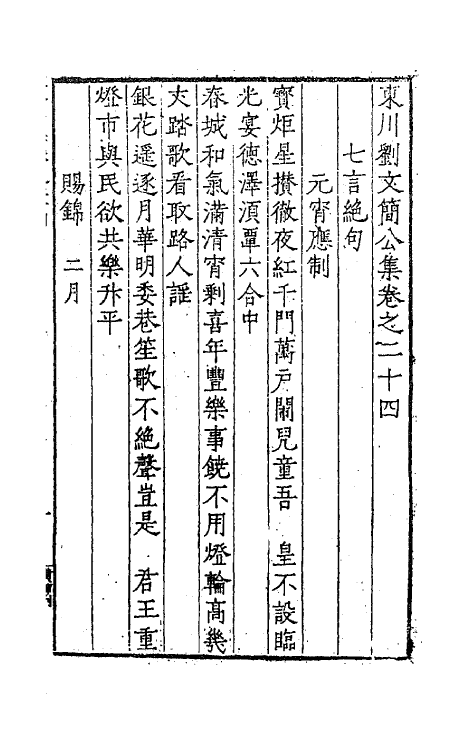 東川劉文簡公集卷之二十四
七言絶句
元宵應制
寳炬星攅徹夜紅千門萬户鬧兒童吾　皇不設臨
光宴德澤湏覃六合中
春城和氣滿清宵剩喜年豐樂事饒不用燈輪髙幾
丈踏歌看取路人謡
銀花遥逐月華明委巷笙歌不絶聲豈是　君王重
燈市與民欲共樂升平
賜錦　二月